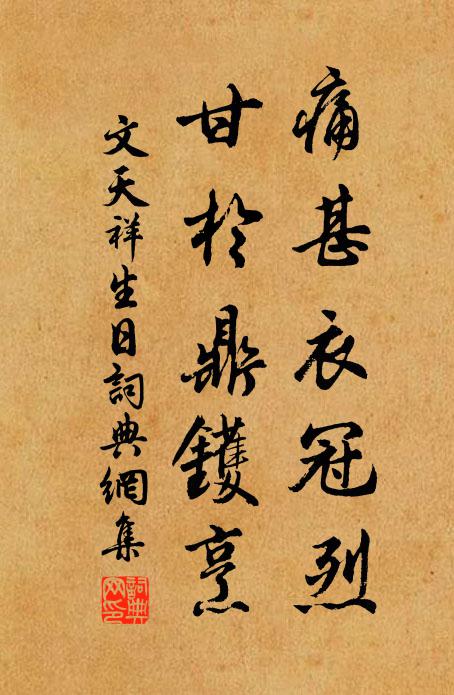 痛甚衣冠烈
甘於鼎鑊烹
文天祥生日詞典網集
詞典網印